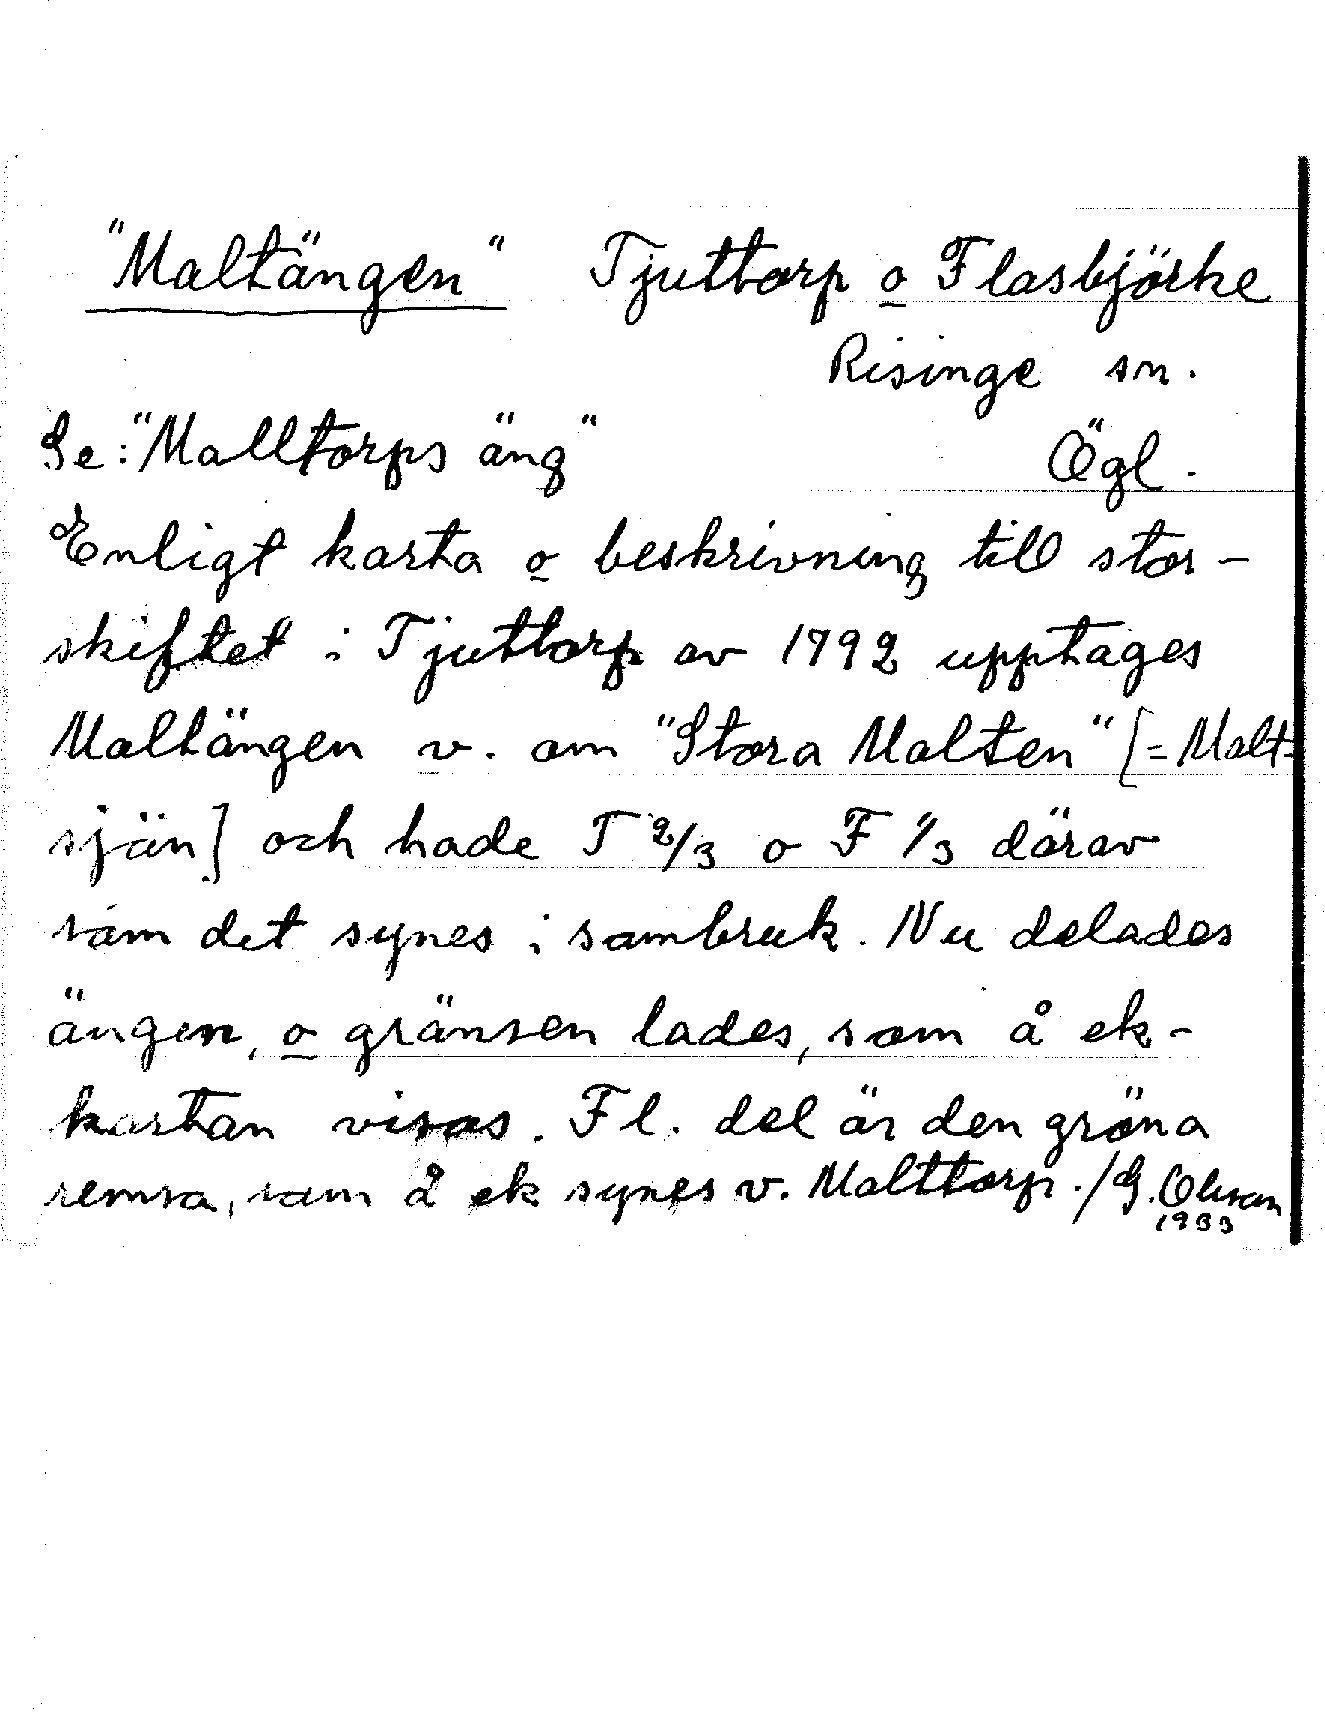 "Maltängen" Tjuttorp o Flasbjörke
Risinge sn.
Se: "Malltorps äng"
Ögl.
Enligt karta o beskrivning till stor-
skiftet i Tjuttorp av 1792 upptages
Maltängen v. om "Stora Malten" [=Malt=
sjön] och hade T 2/3 o F 1/3 därav
som det synes i sambruk. Nu delades
ängen, o gränsen lades, som å ek-
kartan visas. Fl. del är den gröna
remsa, som å ek synes v. Malttorp. /G. Olsson
1933